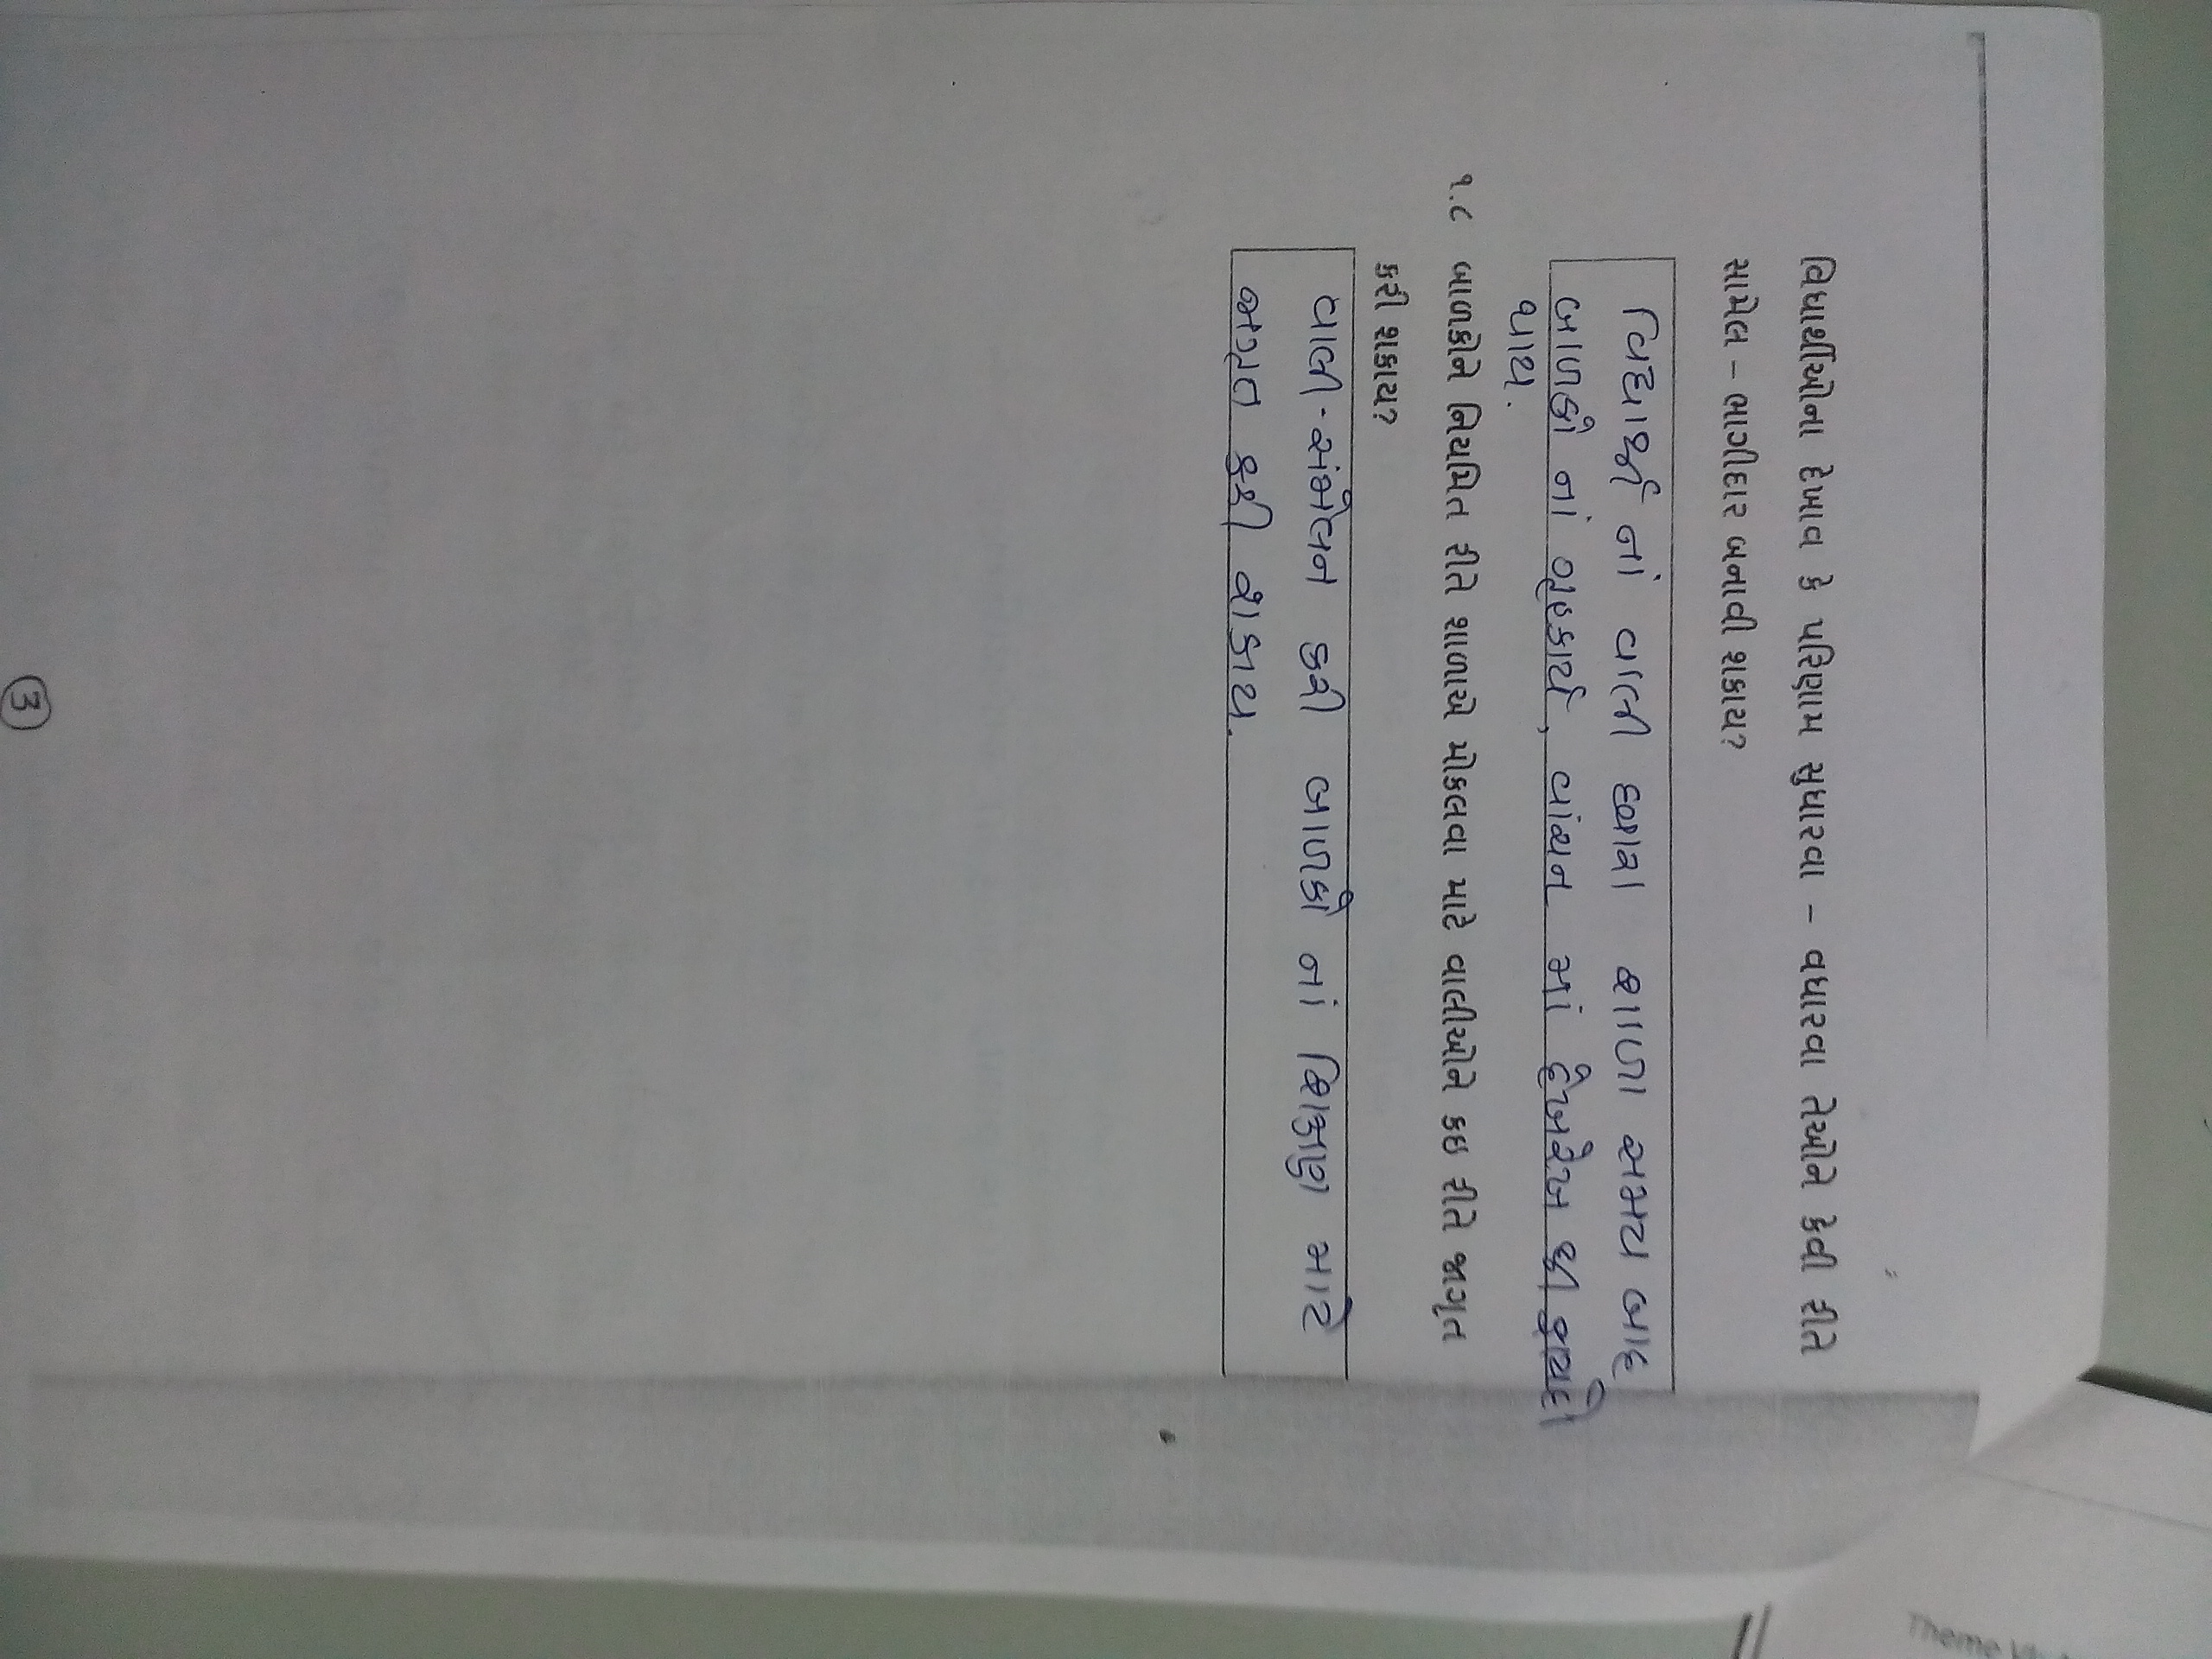 વિધાર્થીઓના દેખાવ કે પરિણામ સુધારવા – વધારવા તેઓને કેવી રીતે
સામેલ – ભાગીદાર બનાવી શકાય?
વિદ્યાર્થી નાં વાલી દ્વારા શાળા સમય બાદ
બાળકો નાં ગૃહકાર્ય, વાંચન માં દેખરેખ થી ફાયદો
થાય.
૧.૮ બાળકોને નિયમિત રીતે શાળાએ મોકલવા માટે વાલીઓને કઇ રીતે જાગૃત
કરી શકાય?
વાલી-સંમેલન કરી બાળકો નાં શિક્ષણ માટે
જાગૃત કરી શકાય.
3
Theme